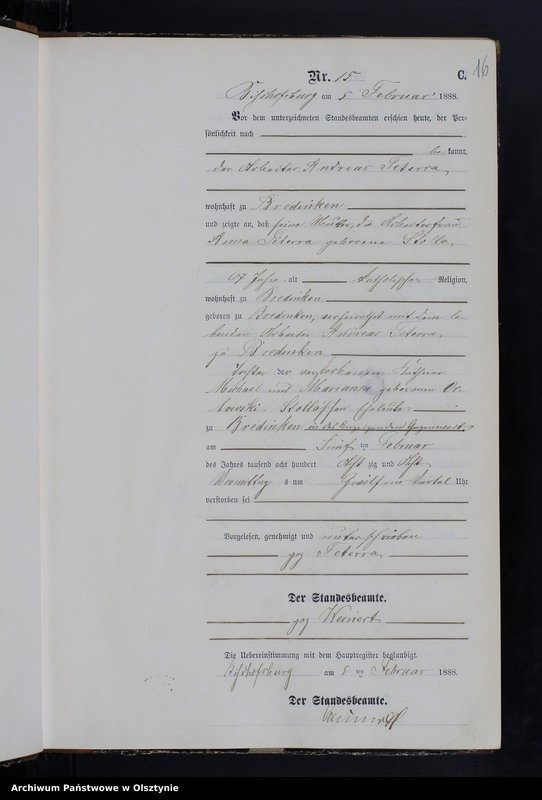 16
Nr. 15 C.
Bischofsburg am 5 Februar 1888.
Vor dem unterzeichneten Standesbeamten erschien heute, der Per-
sönlichkeit nach
be kannt,
der Arbeiter Andreas Peterra,
wohnhaft zu Bredinken
und zeigte an, daß seine Mutter, die Arbeiterfrau
Anna Peterra geborene Stolla,
67 Jahre alt katholischer Religion,
wohnhaft zu Bredinken
geboren zu Bredinken, verheirathet mit dem le-
benden Arbeiter Andreas Peterra,
zu Bredinken
Tochter der verstorbenen
Michael und Marianne geborenen Or-
lowski Stolla'schen Eheleute
zu Bredinken in des Anzeigenden Gegenwart
am Fünften Februar
des Jahres tausend acht hundert Acht zig und Acht
Vormittag s um Zwölf ein Viertel Uhr
verstorben sei
Vorgelesen, genehmigt und unterschrieben
gez Peterra
Der Standesbeamte.
gez Weinert
Die Uebereinstimmung mit dem Hauptregister beglaubigt.
Bischofsburg am 5 ten Februar 1888.
Der Standesbeamte.
Archiwum Państwowe w Olsztynie